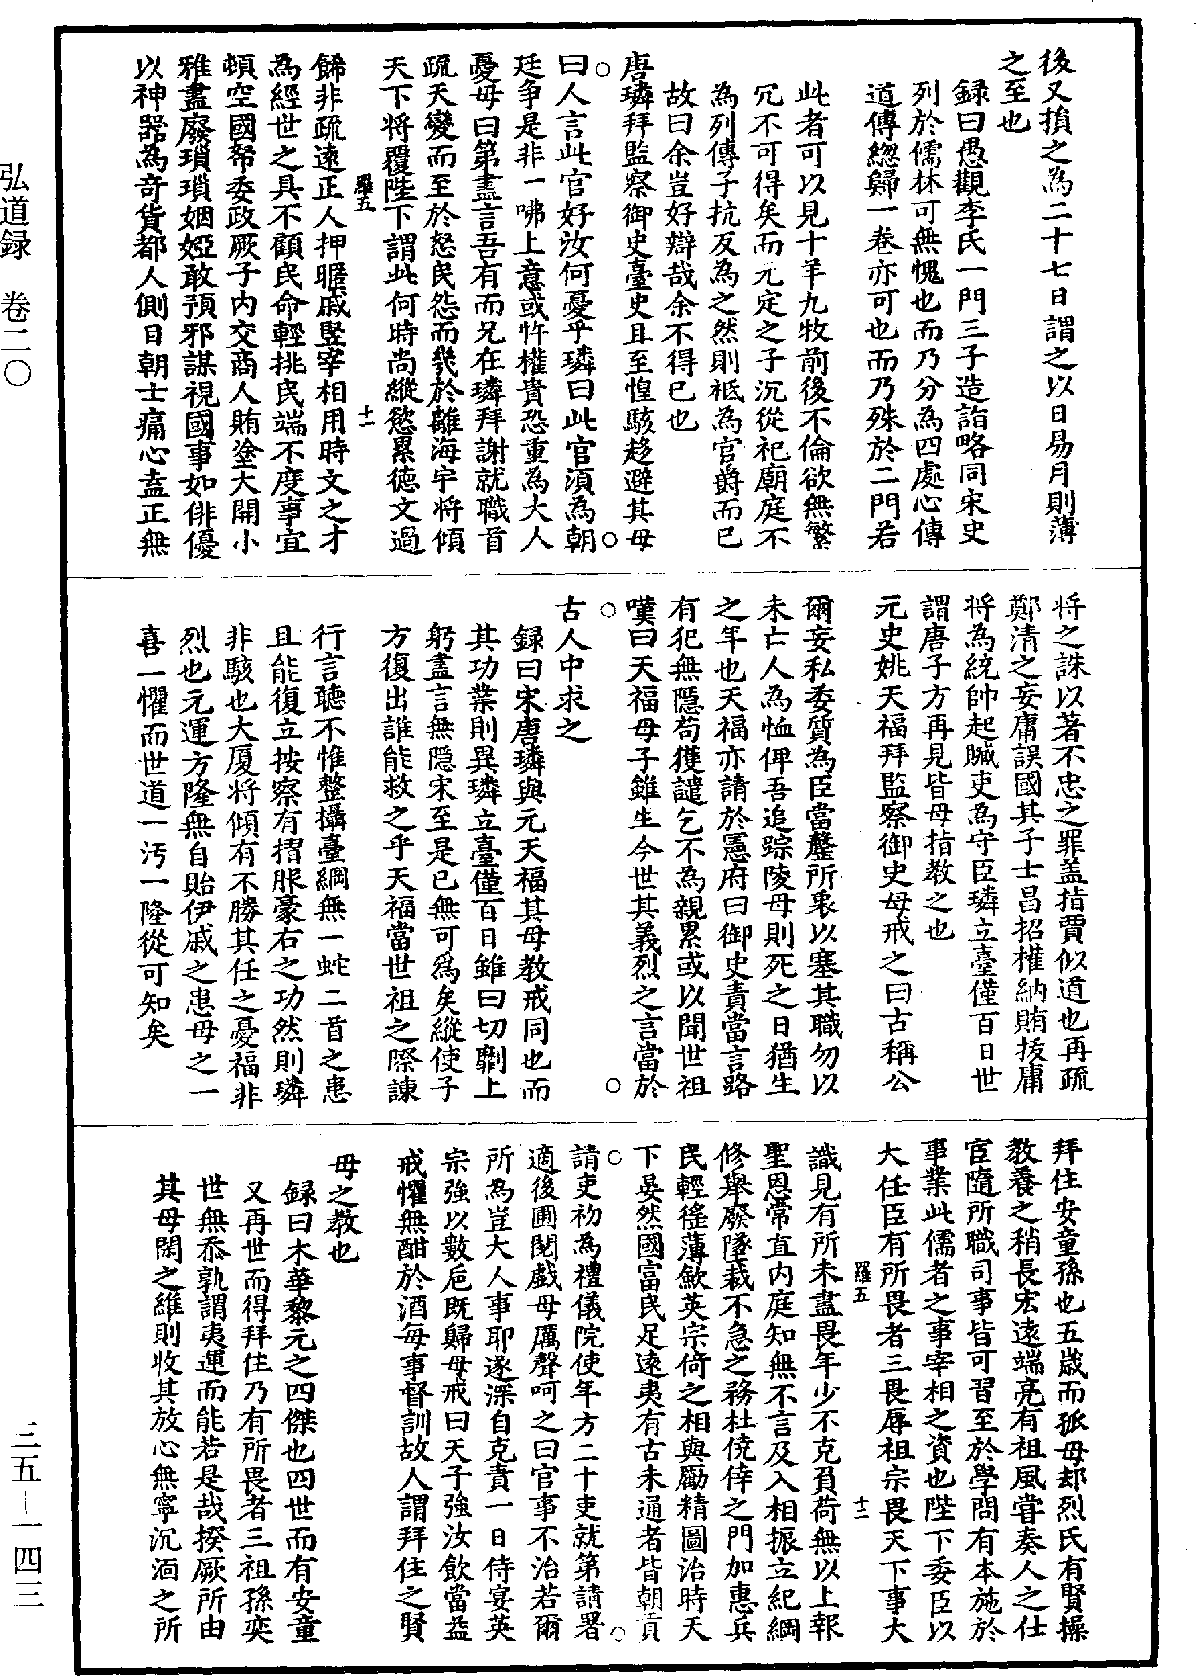 弘道録　卷二〇
後又損之為二十七日謂之以日易月則薄
之至也
録曰愚觀李氏一門三子造詣略同宋史
列於儒林可無愧也而乃分為四處心傳
道傳總歸一卷亦可也而乃殊於二門若
此者可以見十羊九牧前後不倫欲無繁
冗不可得矣而元定之子沉從祀廟庭不
為列傳子抗反為之然則祗為官爵而已
故曰余豈好辯哉余不得已也
唐璘拜監察御史臺史且至惶駭趍避其母
曰人言此官好汝何憂乎璘曰此官須為朝
廷争是非一咈上意或忤權貴恐重為大人
憂母曰第盡言吾有而兄在璘拜謝就職首
疏天變而至於怒民怨而幾於離海宇將傾
天下將覆陛下謂此何時尚縱慾累德文過
羅五
十一
餙非疏遠正人押暱戚豎宰相用時文之才
為經世之具不顧民命輕挑民端不度事宜
頓空國帑委政厥子内交商人賄塗大開小
雅盡廢瑣瑣姻婭敢預邪謀視國事如俳優
以神器為奇貨都人側目朝士痛心盍正無
將之誅以著不忠之罪盖指賈似道也再疏
鄭清之妄庸誤國其子士昌招權納賄拔庸
將為統帥起贓吏為守臣璘立臺僅百日世
謂唐子方再見皆母指教之也
元史姚天福拜監察御史母戒之曰古稱公
爾妄私委質為臣當罄所衷以塞其職勿以
未亡人為恤俾吾追踪陵母則死之日猶生
之年也天福亦請於憲府曰御史責當言路
有犯無隱苟獲譴乞不為親累或以聞世祖
嘆曰天福母子雖生今世其義烈之言當於
古人中求之
録曰宋唐璘與元天福其母教戒同也而
其功業則異璘立臺僅百日雖曰切劘上
躬盡言無隠宋至是已無可為矣縱使子
方復出誰能救之乎天福當世祖之際諫
行言聽不惟整攝臺綱無一蛇二首之患
且能復立按察有摺脤豪右之功然則璘
非駭也大厦将傾有不勝其任之憂福非
烈也元運方隆無自貽伊戚之患母之一
喜一懼而世道一汚一隆從可知矣
拜住安童孫也五歲而孤母却烈氏有賢操
教養之稍長宏遠端亮有祖風嘗奏人之仕
宦隨所職司事皆可習至於學問有本施於
事業此儒者之事宰相之資也陛下委臣以
大任臣有所畏者三畏辱祖宗畏天下事大
羅五
十二
識見有所未盡畏年少不克負荷無以上報
聖恩常直内庭知無不言及入相振立紀綱
修舉廢墜裁不急之務杜僥倖之門加惠兵
民輕徭薄歛英宗倚之相與勵精圖治時天
下晏然國富民足遠夷有古未通者皆朝貢
請吏初為禮儀院使年方二十吏就第請署
適後圃閱戲母厲聲呵之曰官事不治若爾
所為豈大人事耶遂深自克責一日侍宴英
宗強以數巵既歸母戒曰天子強汝飲當益
戒懼無酣於酒每事督訓故人謂拜住之賢
母之教也
録曰木華黎元之四傑也四世而有安童
又再世而得拜住乃有所畏者三祖孫奕
世無忝孰謂夷運而能若是哉揆厥所由
其母閑之維則收其放心無寧沉湎之所
三五－一四三